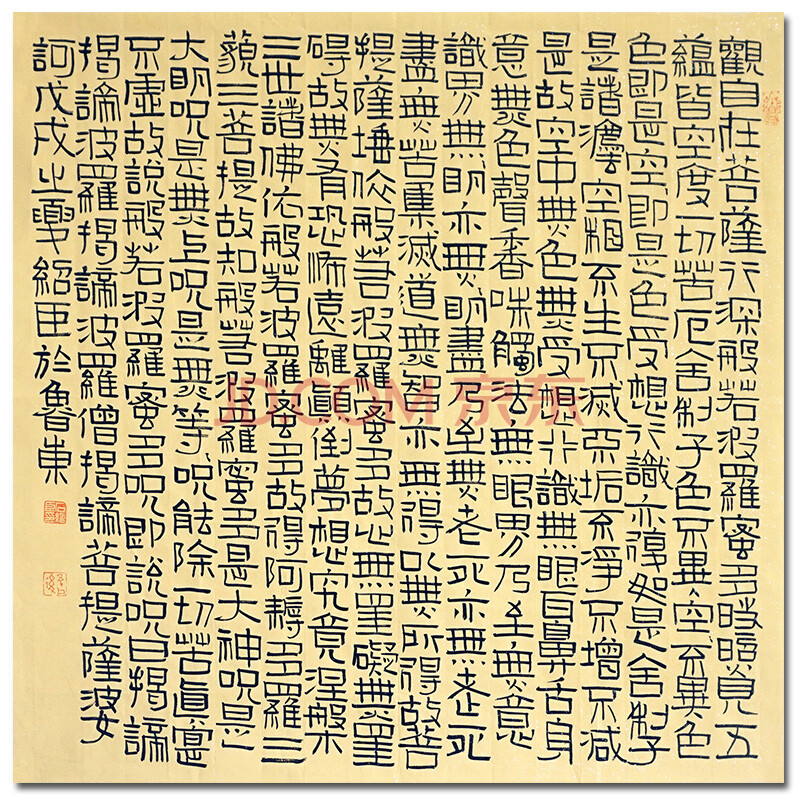 觀自在菩薩行深般若波羅蜜多時照見五
蘊皆空度一切苦厄舍利子色不異空不異色
色即是空即是色受想行識亦復如是舍利子
是諸灋空相不生不滅不垢不淨不增不減
是故空中無色無受想行識無眼耳鼻舌身
意無色聲香味觸法無眼界乃至無意
識界無明亦無明盡乃至無老死亦無老死
盡無苦集滅道無智亦無得以無所得故菩
提薩埵依般若波羅蜜多故心無罣礙無罣
碍故無有恐怖遠離顛倒夢想究竟涅槃
三世諸佛依般若波羅蜜多故得阿耨多羅三
藐三菩提故知般若波羅蜜多是大神呪是
大明呪是無上呪是無等呪能除一切苦真實
不虛故說般若波羅蜜多呪即說呪曰揭諦
揭諦波羅揭諦波羅僧揭諦菩提薩婆
訶戊戌之夏紹臣於魯東
JD.COM 京东